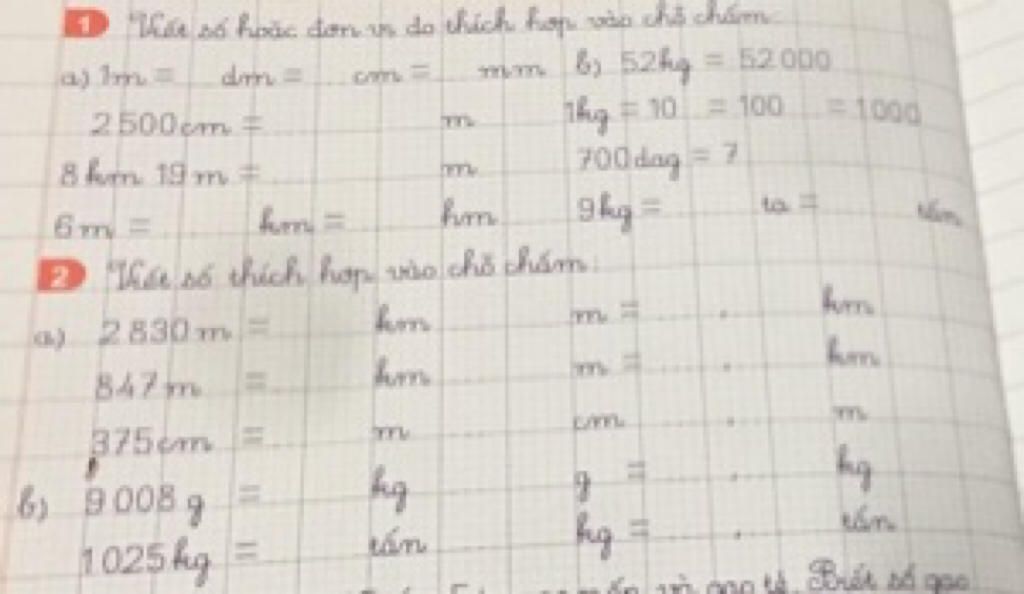 1 Viết số hoặc đơn vị đo thích hợp vào chỗ chấm
a) 1m = dm = cm = mm b) 52kg = 52 000
2 500cm = m 1kg = 10 = 100 = 1000
8 km 19 m = m 700dag = 7
6m = km = hm 9kg = tạ = tấn
2 Viết số thích hợp vào chỗ chấm:
a) 2 830 m = km m = . km
847 m = km m = . km
375cm = m cm . m
b) 9 008 g = kg g = . kg
1 025 kg = tấn kg = . tấn
và gạo tẻ. Biết số gạo